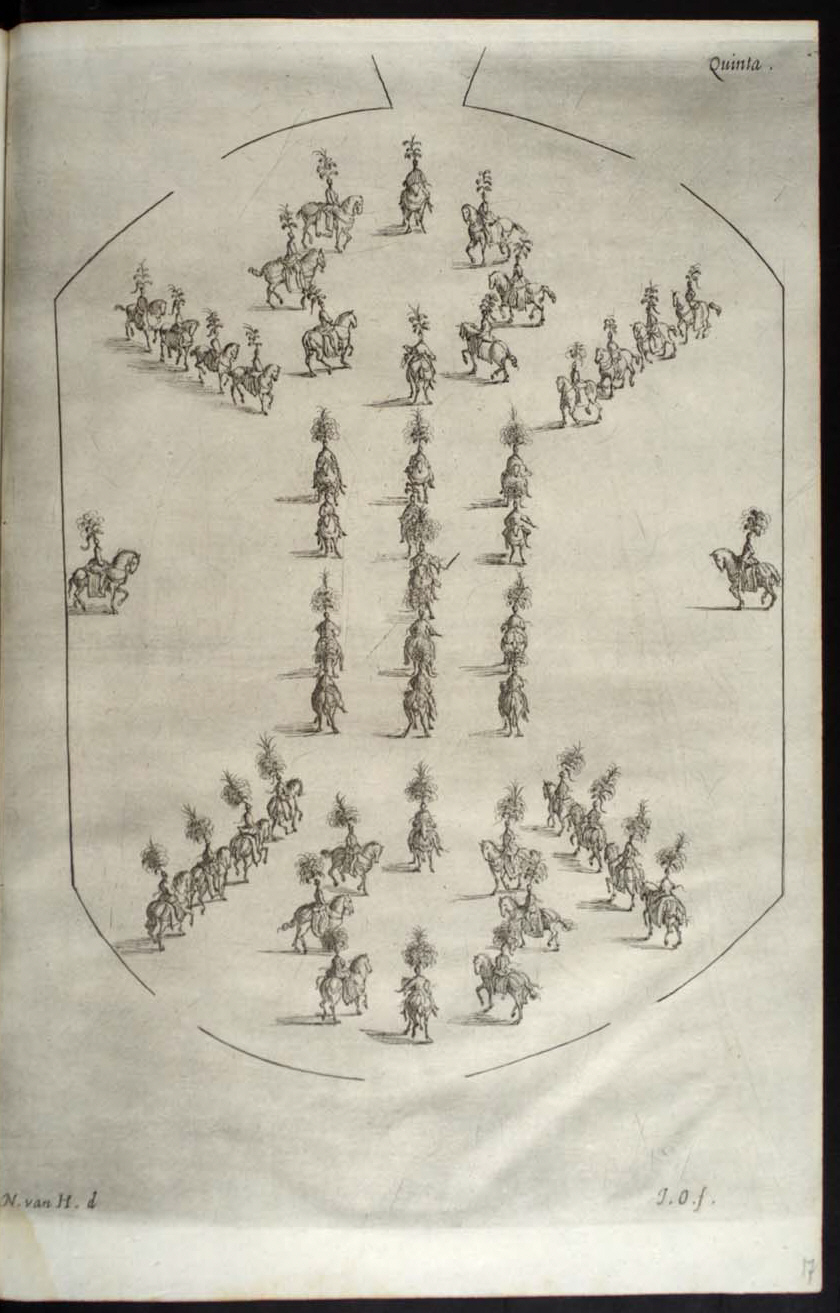 Quinta .
N. van H. d
J. O. f.
17